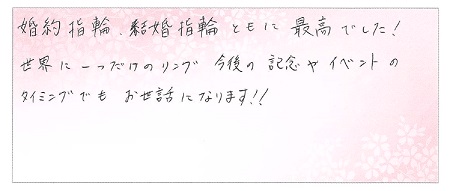 婚約指輪、結婚指輪ともに最高でした!
世界に一つだけのリング 今後の記念やイベントの
タイミングでも お世話になります!!